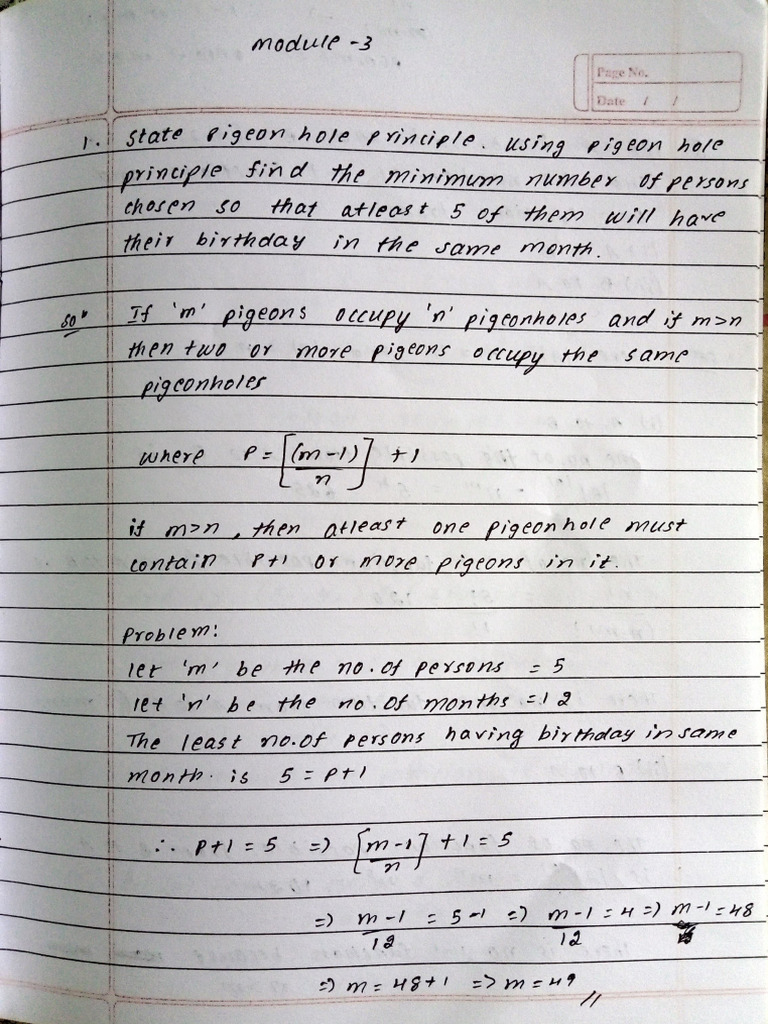 Module - 3
Page No.
Date / /
1. State pigeon hole principle. Using pigeon hole
principle find the minimum number of persons
chosen so that atleast 5 of them will have
their birthday in the same month.
Solⁿ If 'm' pigeons occupy 'n' pigeonholes and if m>n
then two or more pigeons occupy the same
pigeonholes
where P = [(m-1)/n] + 1
if m>n, then atleast one pigeonhole must
contain P+1 or more pigeons in it.
Problem:
let 'm' be the no. of persons = 5
let 'n' be the no. of months = 12
The least no. of persons having birthday in same
month. is 5 = P+1
∴ P+1 = 5 => [m-1/n] + 1 = 5
=> m-1/12 = 5-1 => m-1/12 = 4 => m-1 = 48
=> m = 48+1 => m = 49 //